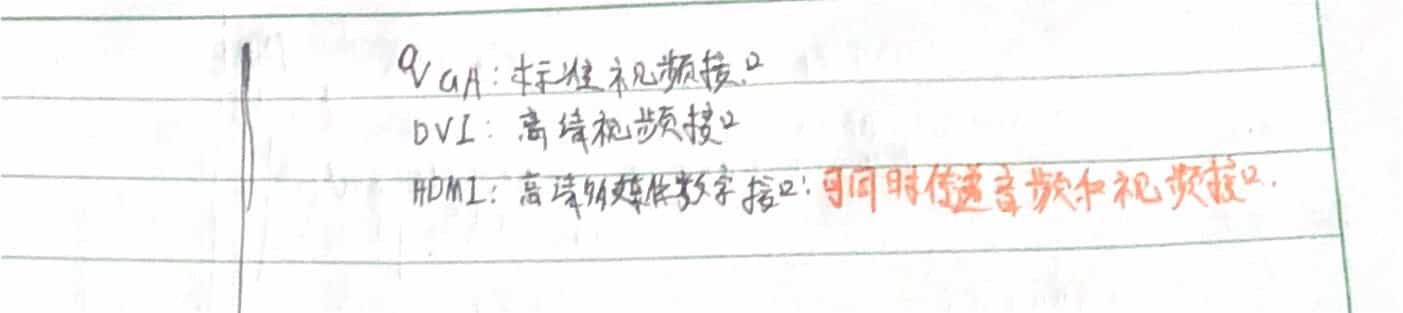 VGA:标准视频接口
DVI:高清视频接口
HDMI:高清多媒体数字接口:可同时传递音频和视频接口.